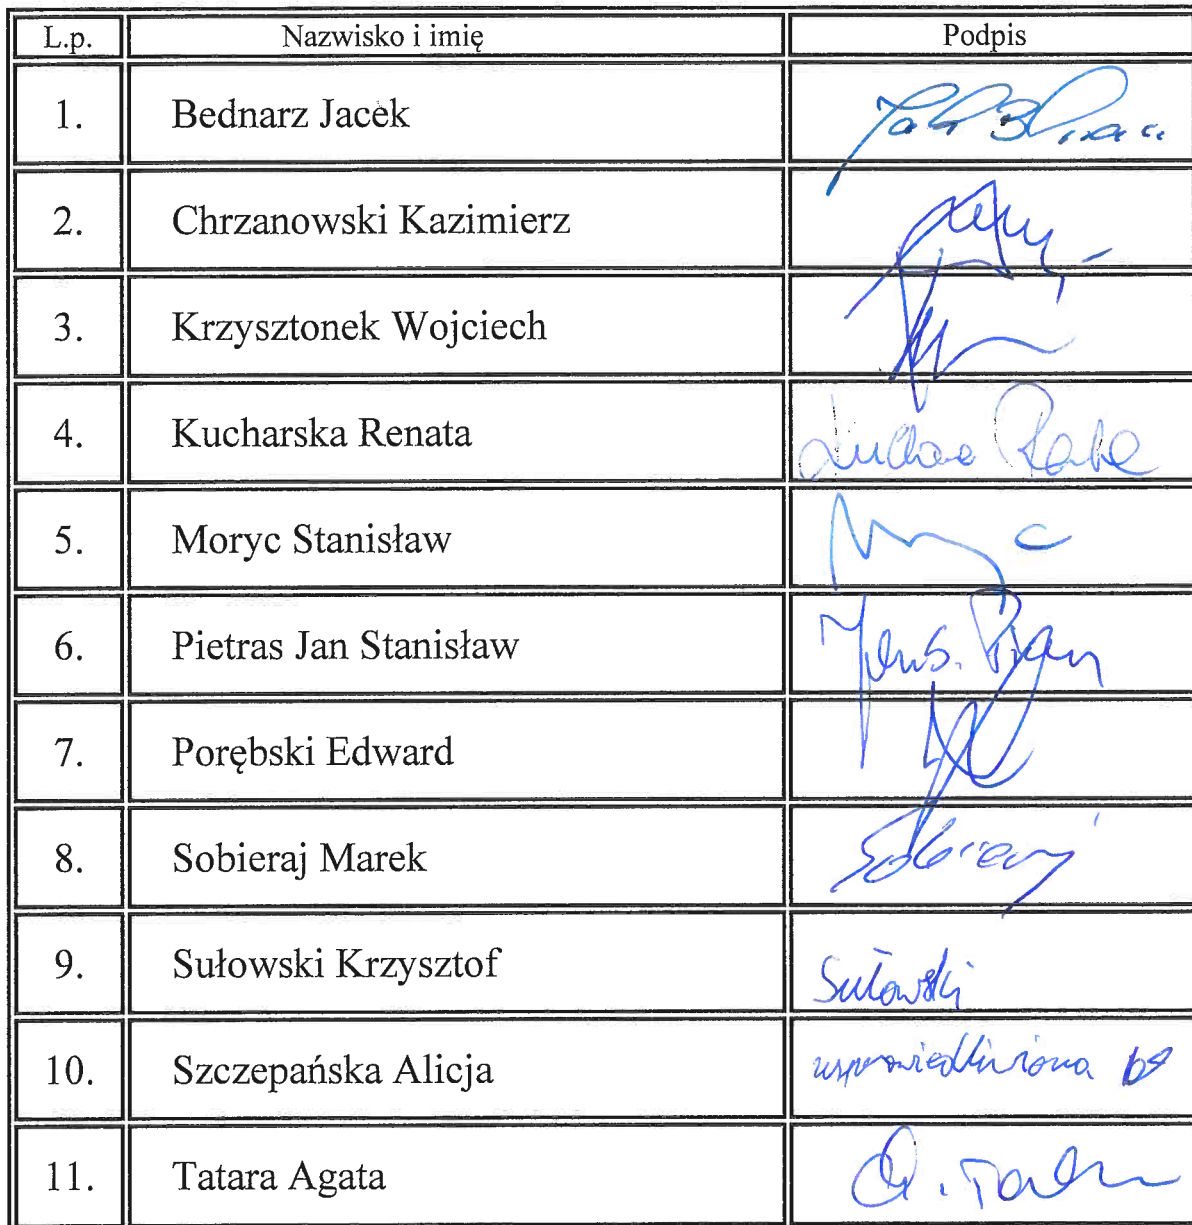 L.p. Nazwisko i imię Podpis
1. Bednarz Jacek
2. Chrzanowski Kazimierz
3. Krzysztonek Wojciech
4. Kucharska Renata
5. Moryc Stanisław
6. Pietras Jan Stanisław
7. Porębski Edward
8. Sobieraj Marek Sobieraj
9. Sułowski Krzysztof Sułowski
10. Szczepańska Alicja usprawiedliwiona
11. Tatara Agata